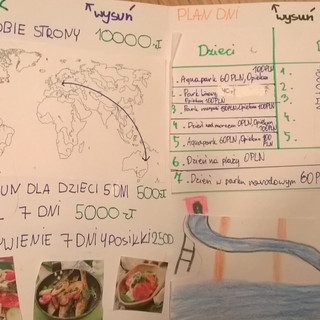 wysuń
OBIE STRONY 10000 zł
UN DLA DZIECI 5 DNI 500 zł
7 DNI 5000 zł
YWIENIE 7 DNI 4 Posiłki 2500
PLAN DNI
wysuń
Dzieci
1.
2.
3
4.
5.
100 PLN
Aquapark 60 PLN, Opiekun
Opiekun 100 PLN
3. Park 60 PLN, Opiekun 100 PLN
4. Dzień nad morzem 0 PLN, Opiekun 100 PLN
5. Aquapark 60 PLN, Opiekun 100 PLN
6. Dzień na plaży 0 PLN
7. Dzień w parku narodowym 60 PLN